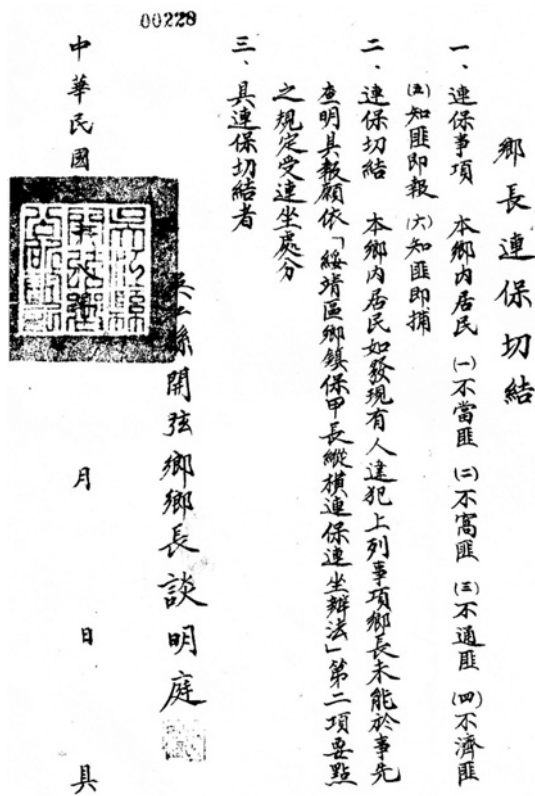 00228
鄉長連保切結
一、連保事項　本鄉內居民㈠不當匪㈡不窩匪㈢不通匪㈣不濟匪
㈤知匪即報㈥知匪即捕
二、連保切結　本鄉內居民如發現有人違犯上列事項鄉長未能於事先
查明具報願依「綏靖區鄉鎮保甲長縱橫連保連坐辦法」第二項要點
之規定受連坐處分
三、具連保切結者
吳江縣開弦鄉鄉長談明庭
中華民國　月　日　具